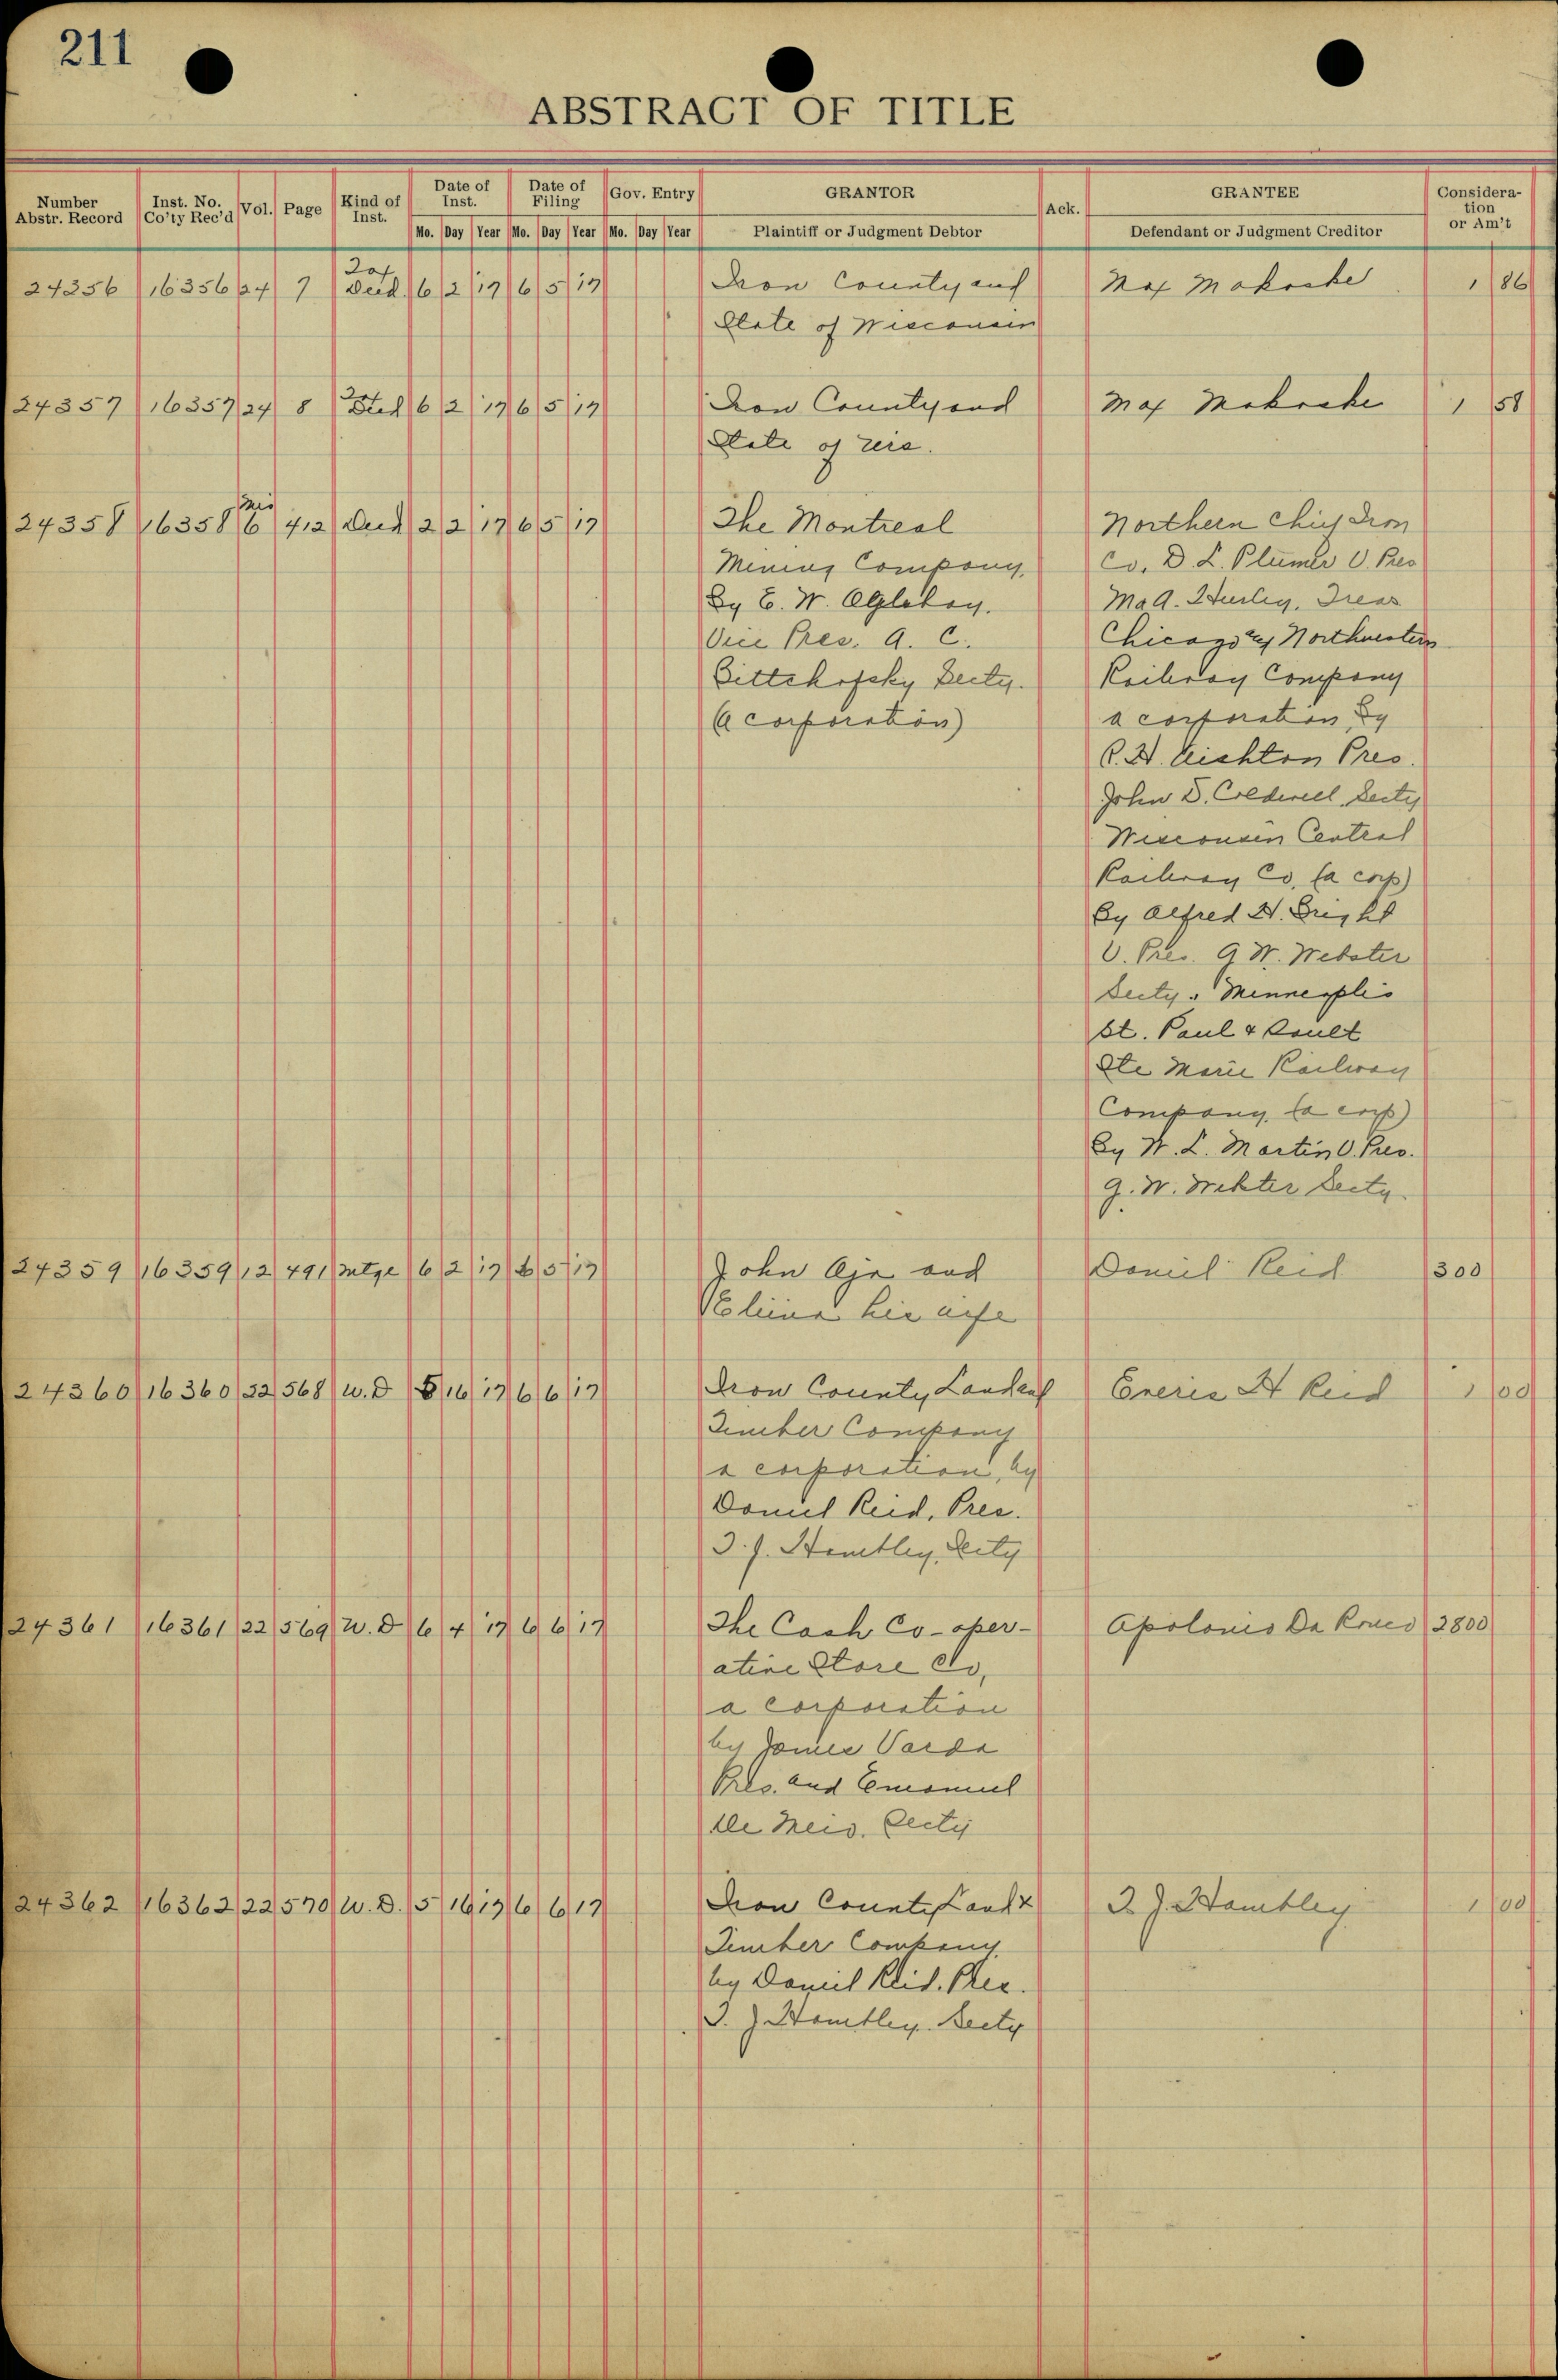 211
ABSTRACT OF TITLE
Number Abstr. Record | Inst. No. Co'ty Rec'd | Vol. | Page | Kind of Inst. | Date of Inst. Mo. Day Year | Date of Filing Mo. Day Year | Gov. Entry Mo. Day Year | GRANTOR Plaintiff or Judgment Debtor | Ack. | GRANTEE Defendant or Judgment Creditor | Consideration or Am't
24356 16356 24 7 Tax Deed 6 2 '17 6 5 '17 Iron County and Max 1 86
State of Wisconsin
24357 16357 24 8 Deed 6 2 '17 6 5 '17 Iron County and Max 1 58
State of Wis.
24358 16358 Mis 6 412 Deed 2 2 '17 6 5 '17 The Montreal Northern Chief Iron
Mining Company, Co. D. L. Plumer V. Pres
By E. W. Oglebay. Hurley, Treas
Vice Pres. A. C. Chicago & Northwestern
Secty. Railway Company
(a corporation) a corporation, By
R. H. Aishton Pres.
John D. Caldwell, Secty
Wisconsin Central
Railway Co, (a corp)
By Alfred H. Bright
V. Pres. G. W. Webster
Secty. Minneaplis
St. Paul & Sault
Ste Marie Railway
Company, (a corp)
By W. L. Martin V. Pres.
G. W. Webster Secty.
24359 16359 12 491 Mtge 6 2 '17 6 5 '17 John and Daniel Reid 300
his wife
24360 16360 22 568 W. D 5 16 '17 6 6 '17 Iron County Land and H Reid 1 00
Timber Company
a corporation, by
Daniel Reid, Pres.
T. J. Hambley, Secty
24361 16361 22 569 W. D 6 4 '17 6 6 '17 The Cash Co-oper- Da 2800
ative Store Co,
a corporation
by James Varda
Pres. and Emanuel
De Secty
24362 16362 22 570 W. D. 5 16 17 6 6 17 Iron County Land & T. J. Hambley 1 00
Timber Company
by Daniel Reid. Pres.
T. J. Hambley. Secty